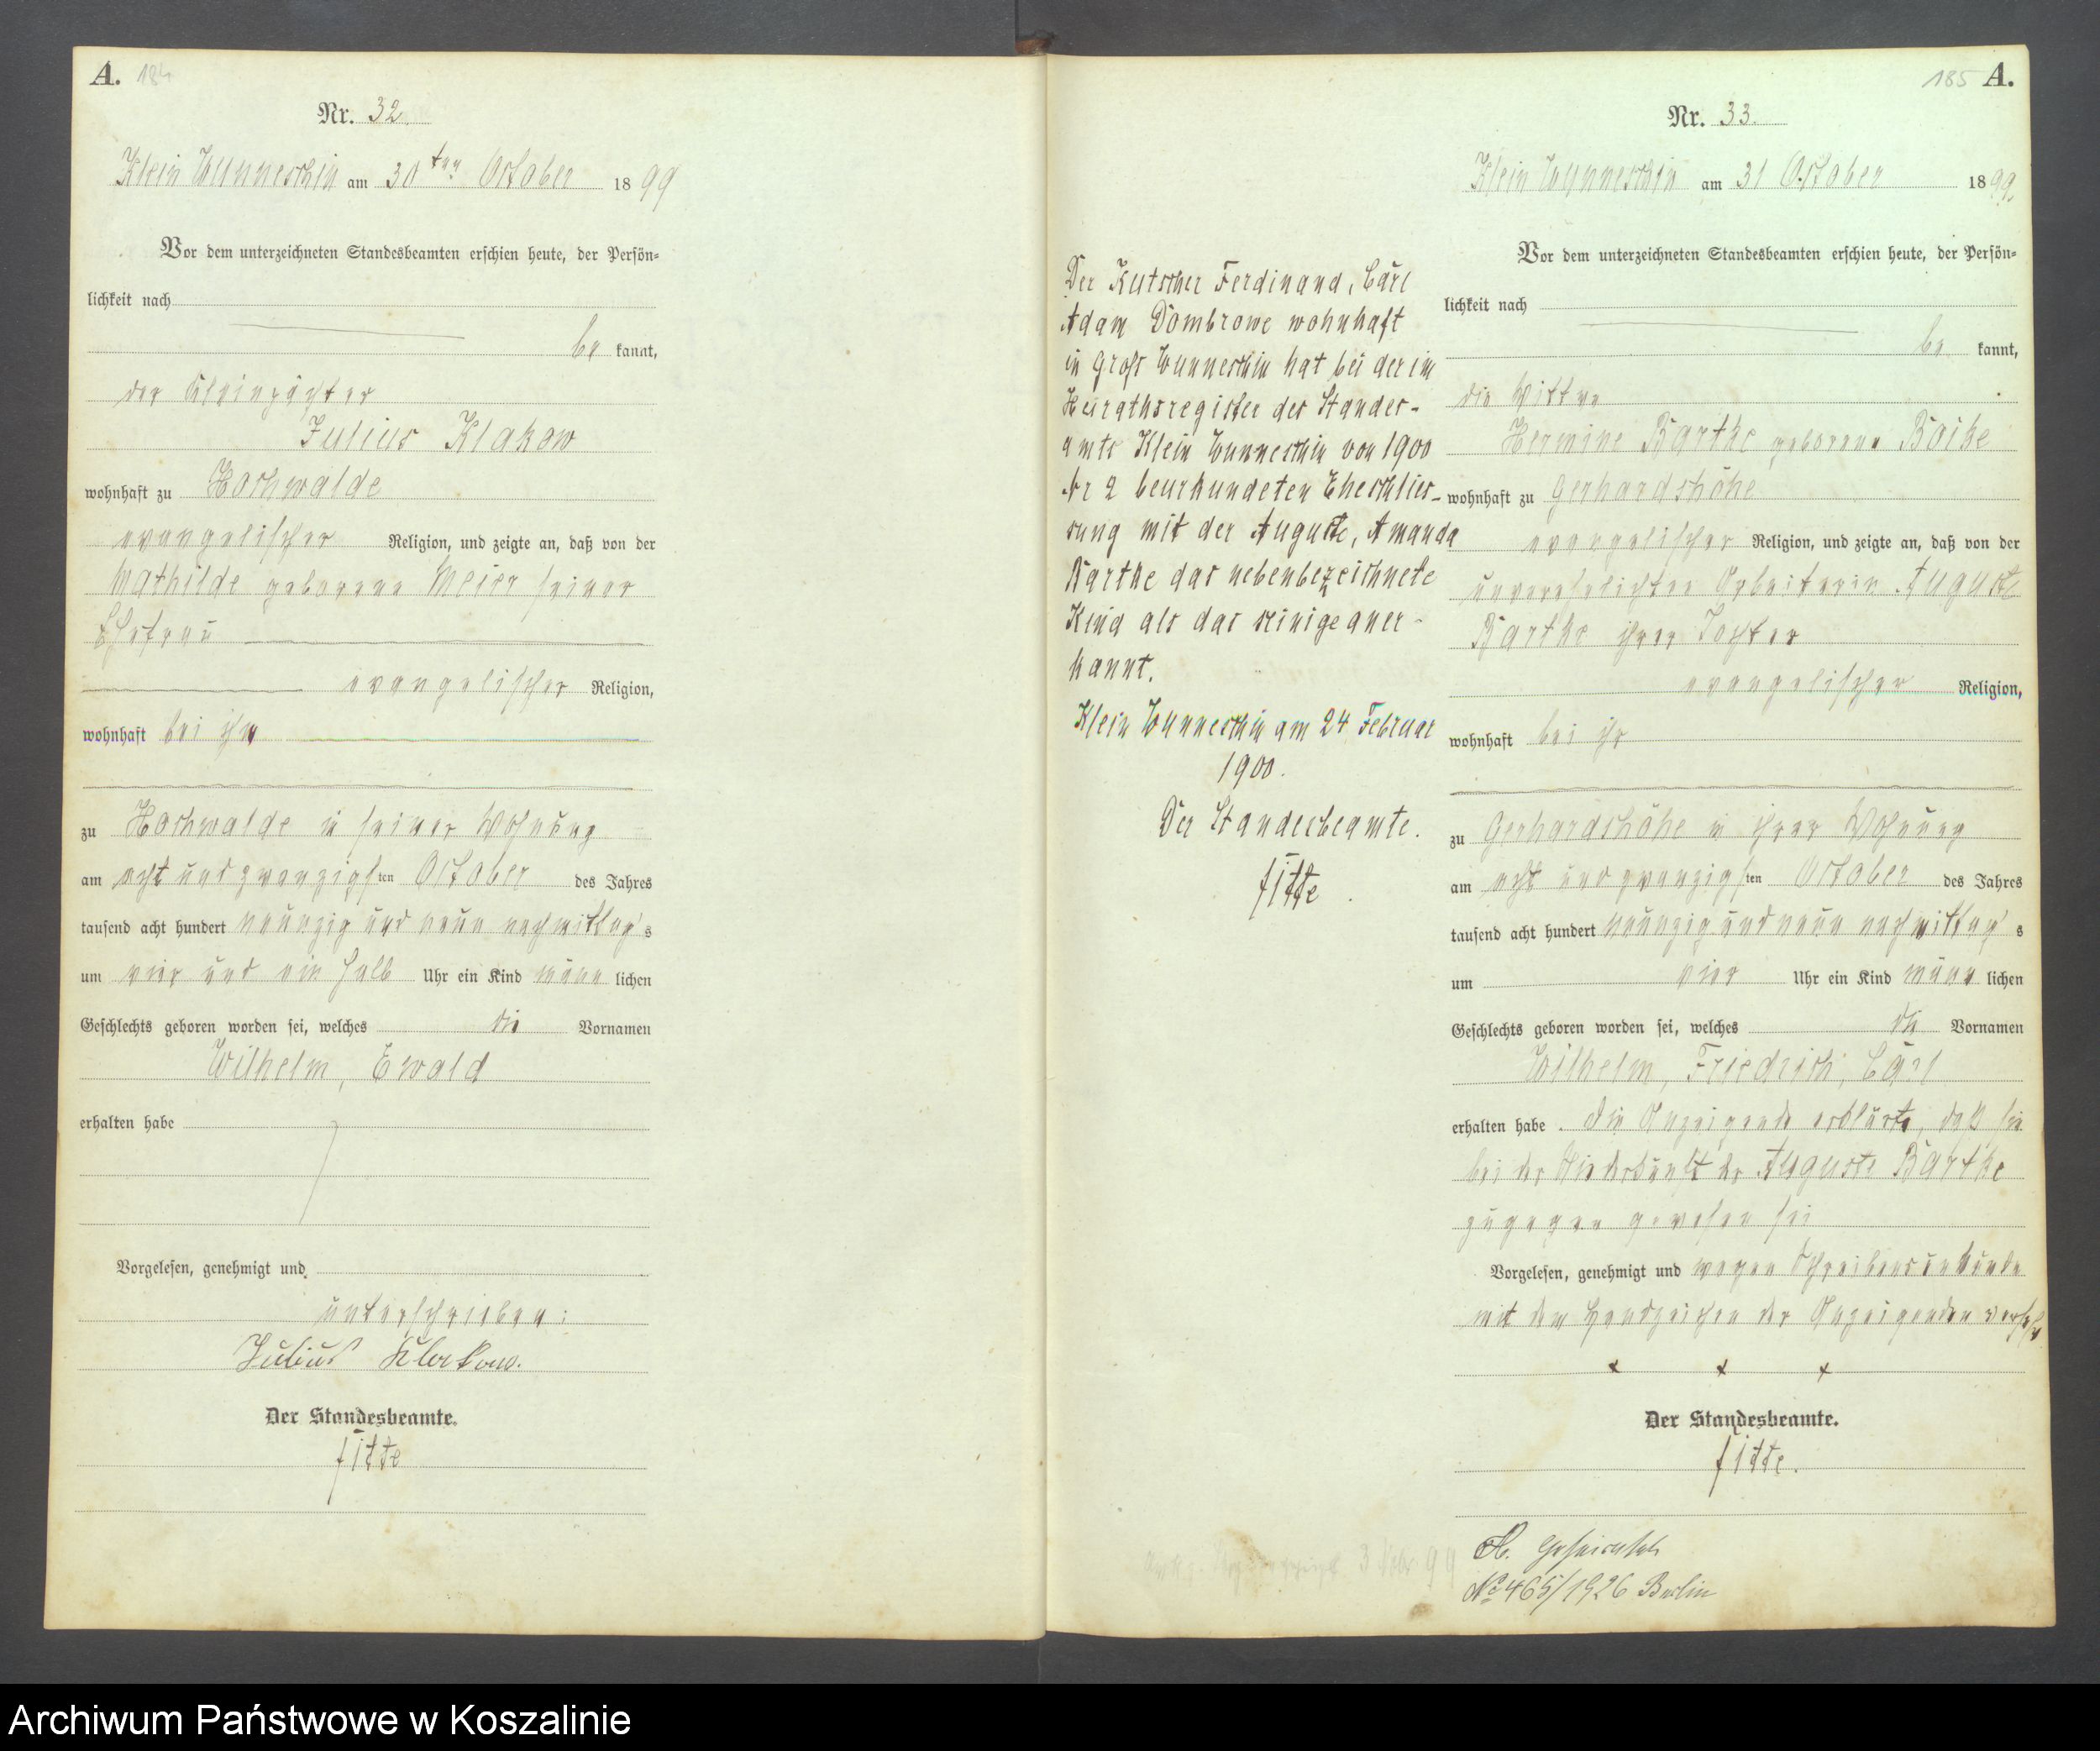 A. 184
Nr. 32.
Klein Wunneschin am 30ten October 1899
Vor dem unterzeichneten Standesbeamten erschien heute, der Persön-
lichkeit nach
be kannt,
der Kleinpächter
Julius Klakow
wohnhaft zu Hochwalde
evangelischer Religion, und zeigte an, daß von der
Mathilde geborene Meier seiner
Ehefrau
evangelischer Religion,
wohnhaft bei ihm
zu Hochwalde in seiner Wohnung
am acht und zwanzigsten October des Jahres
tausend acht hundert neunzig und neun nachmittags
um vier und ein halb Uhr ein Kind männlichen
Geschlechts geboren worden sei, welches die Vornamen
Wilhelm, Ewald
erhalten habe
Vorgelesen, genehmigt und
unterschrieben:
Julius Klakow.
Der Standesbeamte.
Fitte
185 A.
Nr. 33.
Klein Wunneschin am 31 October 1899.
Vor dem unterzeichneten Standesbeamten erschien heute, der Persön-
lichkeit nach
be kannt,
die Wittwe
Hermine Barthe geborene Boike
wohnhaft zu Gerhardshöhe
evangelischer Religion, und zeigte an, daß von der
unverehelichten Arbeiterin Auguste
Barthe ihrer Tochter
evangelischer Religion,
wohnhaft bei ihr
zu Gerhardshöhe in ihrer Wohnung
am acht und zwanzigsten October des Jahres
tausend acht hundert neunzig und neun nachmittags
um vier Uhr ein Kind männlichen
Geschlechts geboren worden sei, welches die Vornamen
Wilhelm, Friedrich, Carl
erhalten habe. Die Anzeigende erklärte, daß sie
bei der Niederkunft der Auguste Barthe
zugegen gewesen sei
Vorgelesen, genehmigt und wegen Schreibensunkunde
mit dem Handzeichen der Anzeigenden versehen
+ + +
Der Standesbeamte.
Fitte.
Nº 465/1926 Berlin
Der Kutscher Ferdinand, Carl
Adam Dombrowe wohnhaft
in Groß Wunneschin hat bei der im
Heirathsregister des Standes-
amts Klein Wunneschin von 1900
Nr 2 beurkundeten Eheschlies-
sung mit der Auguste, Amanda
Barthe das nebenbezeichnete
Kind als das seinige aner-
kannt.
Klein Wunneschin am 24 Februar
1900.
Der Standesbeamte.
Fitte
Archiwum Państwowe w Koszalinie